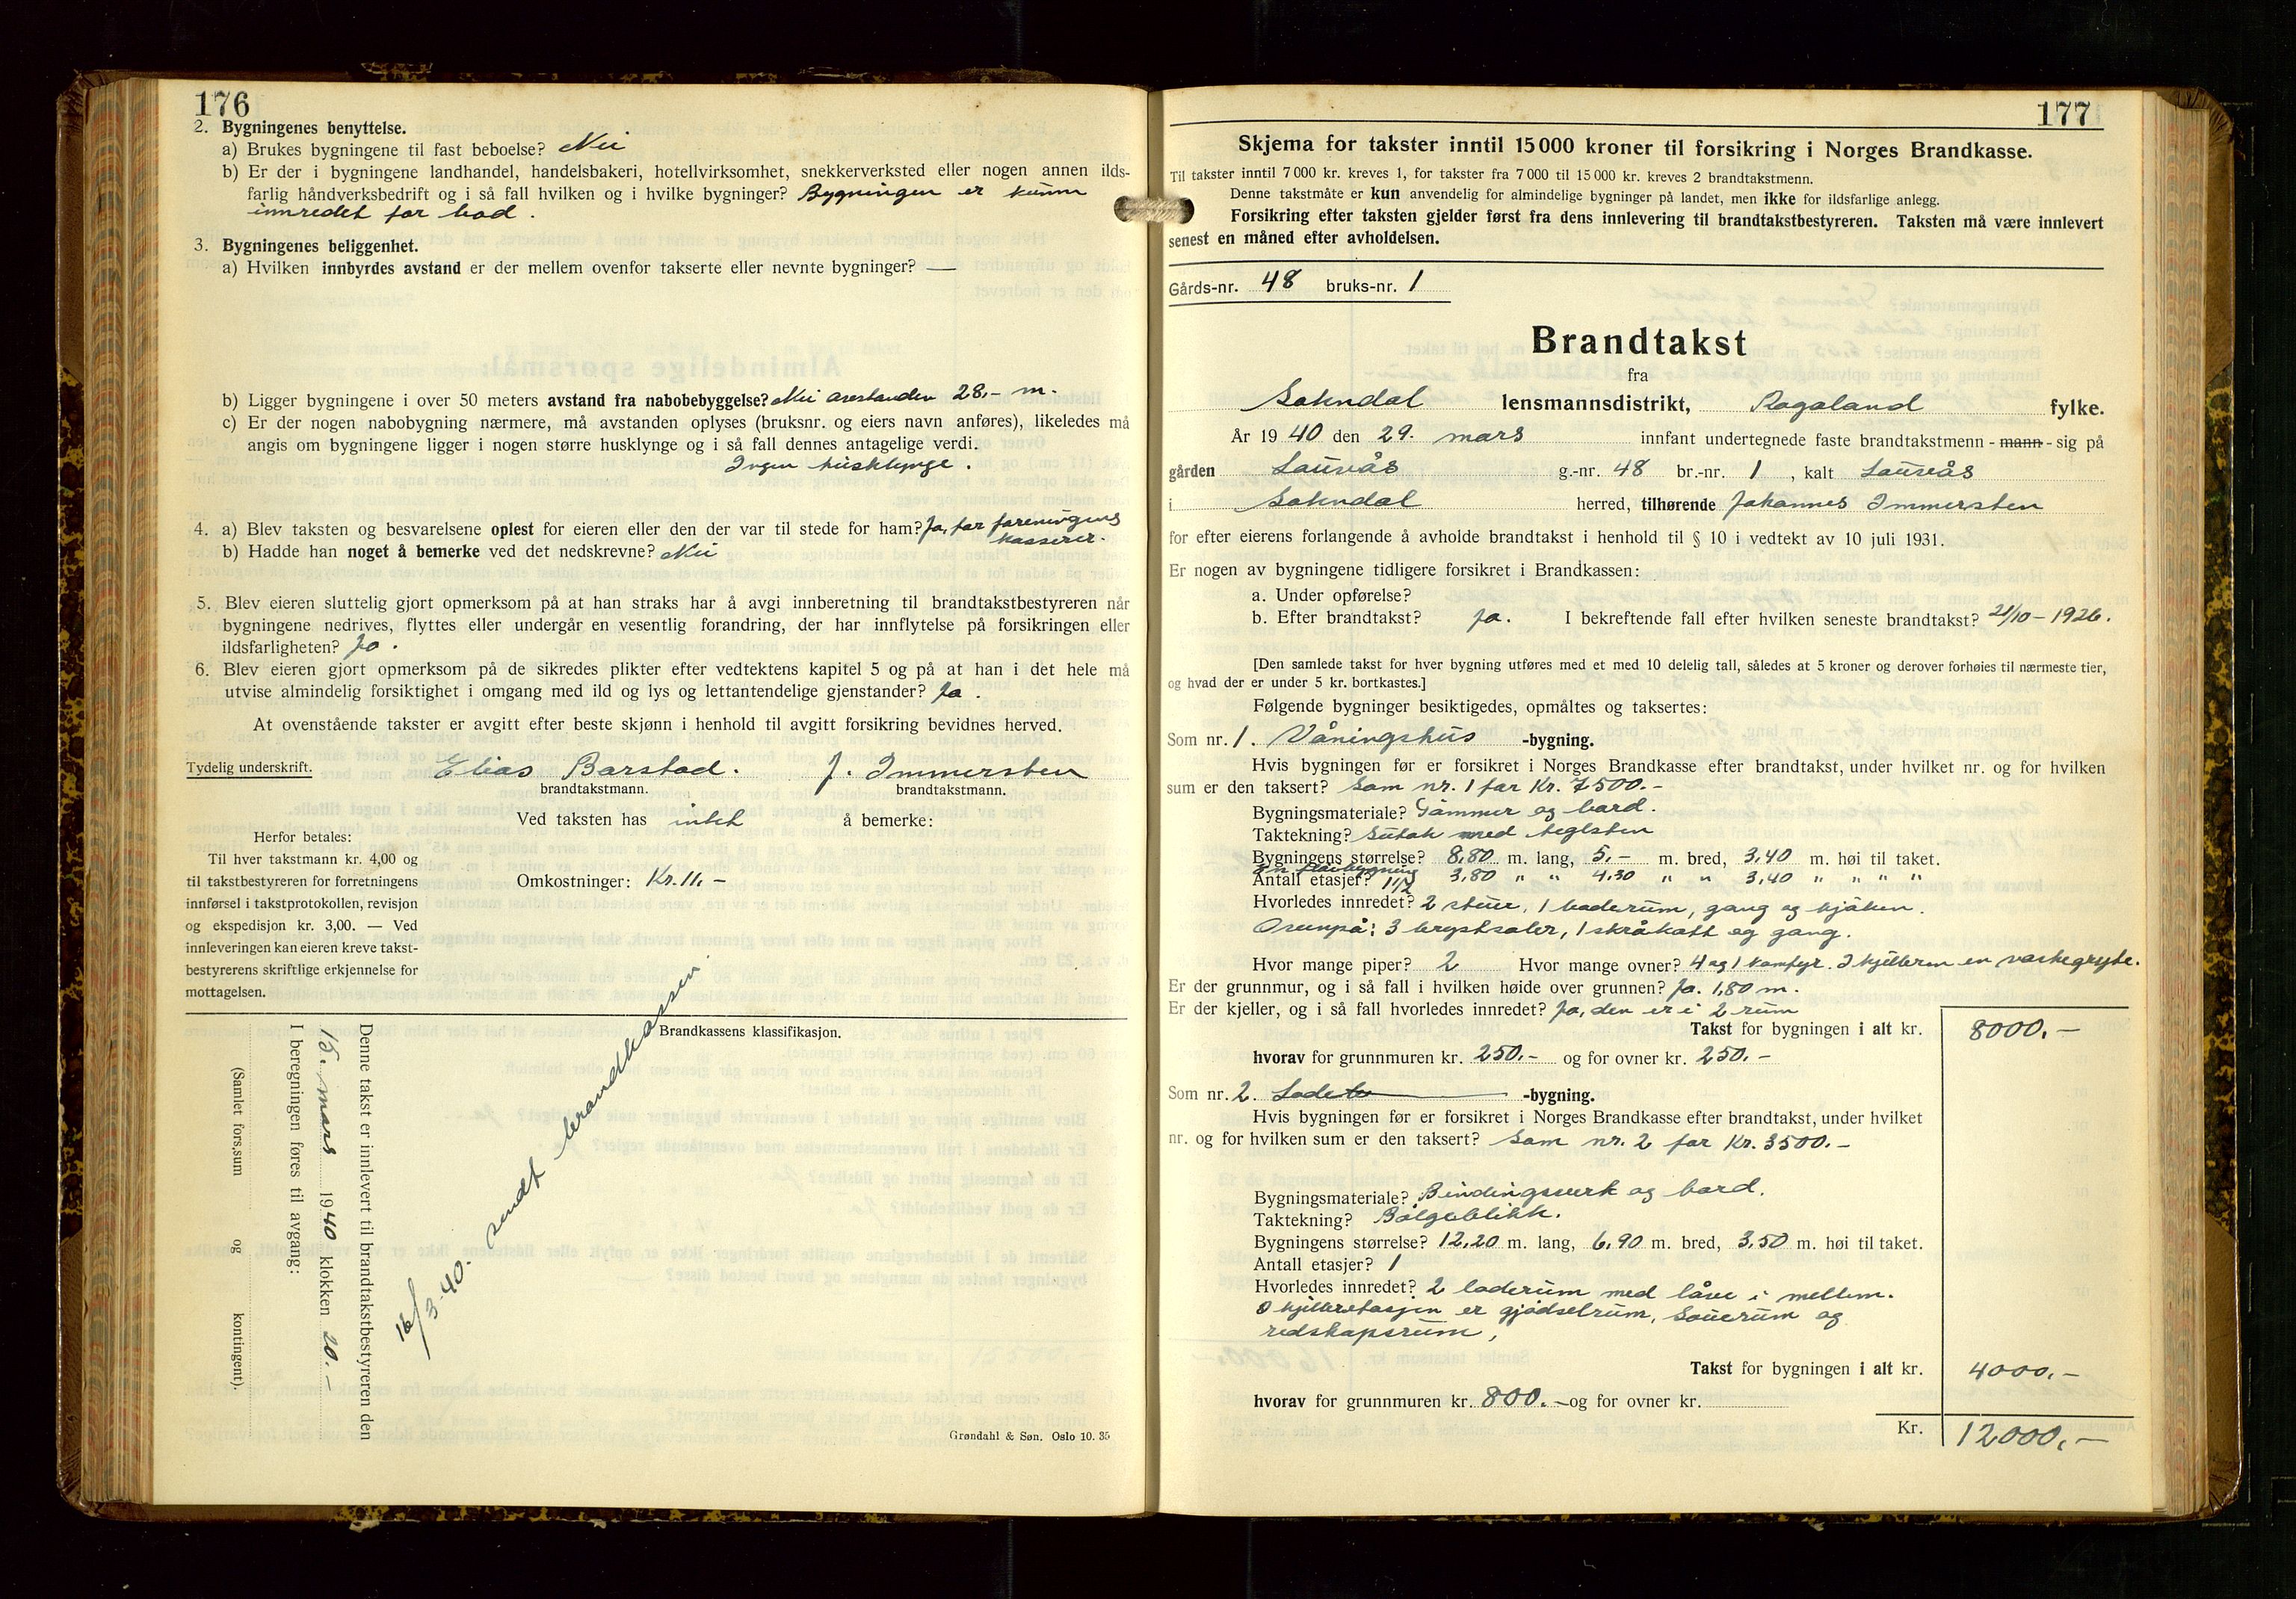 176
2. Bygningenes benyttelse.
a) Brukes bygningene til fast beboelse? Nei
b) Er der i bygningene landhandel, handelsbakeri, hotellvirksomhet, snekkerverksted eller nogen annen ilds-
farlig håndverksbedrift og i så fall hvilken og i hvilke bygninger? Bygningen er kunn
innredet for bad.
3. Bygningenes beliggenhet.
a) Hvilken innbyrdes avstand er der mellem ovenfor takserte eller nevnte bygninger? —
b) Ligger bygningene i over 50 meters avstand fra nabobebyggelse? Nei avstanden 28,- m.
c) Er der nogen nabobygning nærmere, må avstanden oplyses (bruksnr. og eiers navn anføres), likeledes må
angis om bygningene ligger i nogen større husklynge og i så fall dennes antagelige verdi.
Ingen husklynge.
4. a) Blev taksten og besvarelsene oplest for eieren eller den der var til stede for ham? Ja, for foreningens
kasserer.
b) Hadde han noget å bemerke ved det nedskrevne? Nei
5. Blev eieren sluttelig gjort opmerksom på at han straks har å avgi innberetning til brandtakstbestyreren når
bygningene nedrives, flyttes eller undergår en vesentlig forandring, der har innflytelse på forsikringen eller
ildsfarligheten? Ja.
6. Blev eieren gjort opmerksom på de sikredes plikter efter vedtektens kapitel 5 og på at han i det hele må
utvise almindelig forsiktighet i omgang med ild og lys og lettantendelige gjenstander? Ja.
At ovenstående takster er avgitt efter beste skjønn i henhold til avgitt forsikring bevidnes herved.
Tydelig underskrift. Elias Barstad. J. Immersten
brandtakstmann. brandtakstmann.
Ved taksten has intet å bemerke:
Herfor betales:
Til hver takstmann kr. 4,00 og
til takstbestyreren for forretningens
innførsel i takstprotokollen, revisjon
og ekspedisjon kr. 3,00. — Ved
innleveringen kan eieren kreve takst-
bestyrerens skriftlige erkjennelse for
mottagelsen.
Omkostninger: Kr. 11,-
Brandkassens klassifikasjon.
Denne takst er innlevert til brandtakstbestyreren den
15. mars 1940 klokken 20.-
I beregningen føres til avgang:
(Samlet fors.sum og kontingent).
16/3-40. sendt brandkassen
Grøndahl & Søn. Oslo 10. 35
177
Skjema for takster inntil 15 000 kroner til forsikring i Norges Brandkasse.
Til takster inntil 7 000 kr. kreves 1, for takster fra 7 000 til 15 000 kr. kreves 2 brandtakstmenn.
Denne takstmåte er kun anvendelig for almindelige bygninger på landet, men ikke for ildsfarlige anlegg.
Forsikring efter taksten gjelder først fra dens innlevering til brandtakstbestyreren. Taksten må være innlevert
senest en måned efter avholdelsen.
Gårds-nr. 48 bruks-nr. 1
Brandtakst
fra
Sokndal lensmannsdistrikt, Rogaland fylke.
År 1940 den 29. mars innfant undertegnede faste brandtakstmenn - mann - sig på
gården Lauseås g.-nr. 48 br.-nr. 1, kalt Lauseås
i Sokndal herred, tilhørende Johannes Immersten
for efter eierens forlangende å avholde brandtakst i henhold til § 10 i vedtekt av 10 juli 1931.
Er nogen av bygningene tidligere forsikret i Brandkassen:
a. Under opførelse?
b. Efter brandtakst? Ja. I bekreftende fall efter hvilken seneste brandtakst? 21/10 - 1926.
[Den samlede takst for hver bygning utføres med et med 10 delelig tall, således at 5 kroner og derover forhøies til nærmeste tier,
og hvad der er under 5 kr. bortkastes.]
Følgende bygninger besiktigedes, opmåltes og taksertes:
Som nr. 1. Våningshus -bygning.
Hvis bygningen før er forsikret i Norges Brandkasse efter brandtakst, under hvilket nr. og for hvilken
sum er den taksert? Som nr. 1 for Kr. 7500.-
Bygningsmateriale? Tømmer og bord.
Taktekning? Sutak med teglsten
Bygningens størrelse? 8,80 m. lang, 5,- m. bred, 3,40 m. høi til taket.
En tilbygning 3,80 " " 4,30 " " 3,40 " " " "
Antall etasjer? 1 1/2
Hvorledes innredet? 2 stuer, 1 baderum, gang og kjøken.
Ovenpå: 3 brystsaler, 1 skråkott og gang.
Hvor mange piper? 2 Hvor mange ovner? 4 og 1 komfyr. I kjelleren en vaskegryte.
Er der grunnmur, og i så fall i hvilken høide over grunnen? Ja. 1,80 m.
Er der kjeller, og i så fall hvorledes innredet? Ja, den er i 2 rum
Takst for bygningen i alt kr. 8000,-
hvorav for grunnmuren kr. 250.- og for ovner kr. 250.-
Som nr. 2. Lade -bygning.
Hvis bygningen før er forsikret i Norges Brandkasse efter brandtakst, under hvilket
nr. og for hvilken sum er den taksert? Som nr. 2 for Kr. 3500.-
Bygningsmateriale? Bindingsverk og bord.
Taktekning? Bølgeblikk.
Bygningens størrelse? 12,20 m. lang, 6,90 m. bred, 3,50 m. høi til taket.
Antall etasjer? 1
Hvorledes innredet? 2 laderum med låve i mellem.
I kjelleretasjen er gjødselrum, sauerum og
redskapsrum,
Takst for bygningen i alt kr. 4000,-
hvorav for grunnmuren kr. 800.- og for ovner kr.
Kr. 12000,-